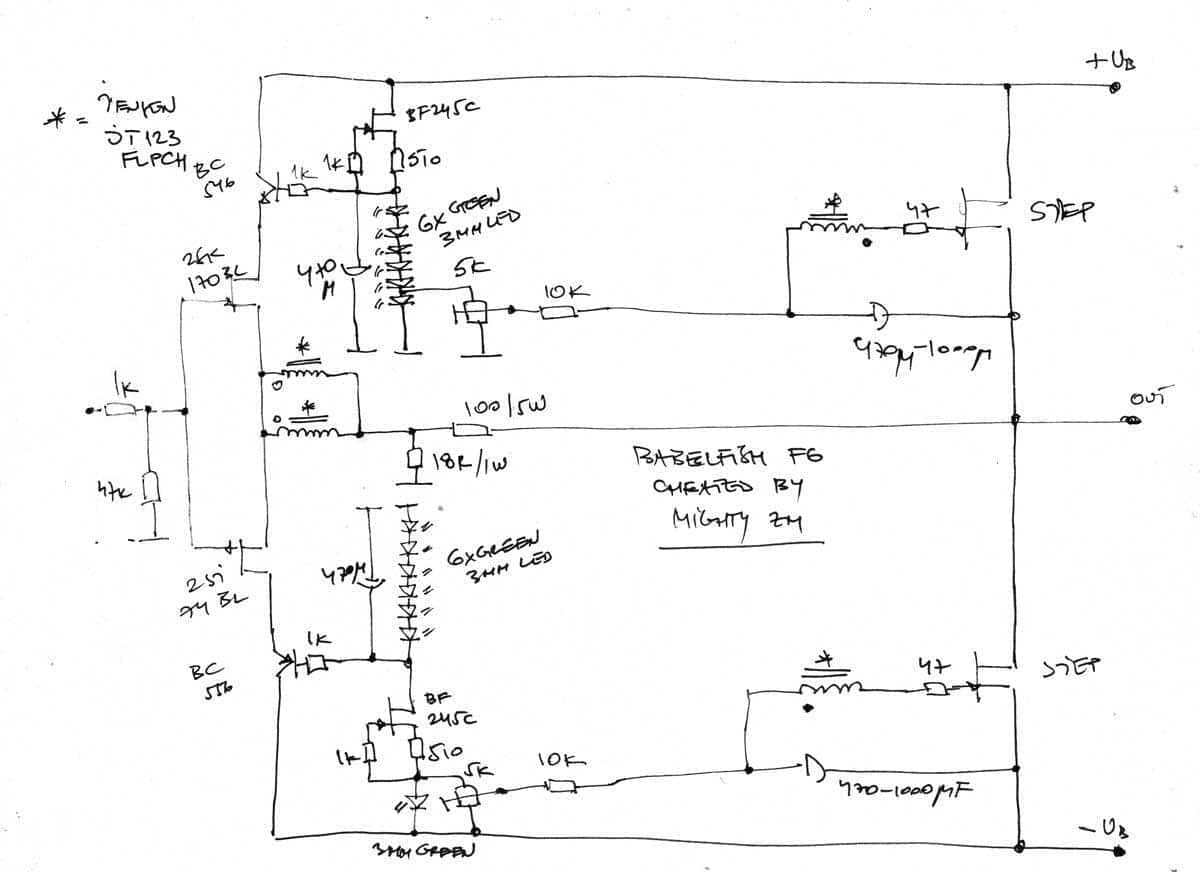 +UB
* = JENSEN
JT123
FLPCH
BF245C
BC
546
1K
1K
510
6X GREEN
3MM LED
STEP
*
47
2SK
170BL
470
M
5K
10K
470µ-1000µ
*
1K
*
100/5W
OUT
18R/1W
BABELFISH F6
CHEATED BY
MIGHTY ZM
47K
470µ
6XGREEN
3MM LED
2SJ
74 BL
1K
BC
556
*
47
STEP
BF
245C
1K
510
5K
10K
470-1000µF
3MM GREEN
-UB